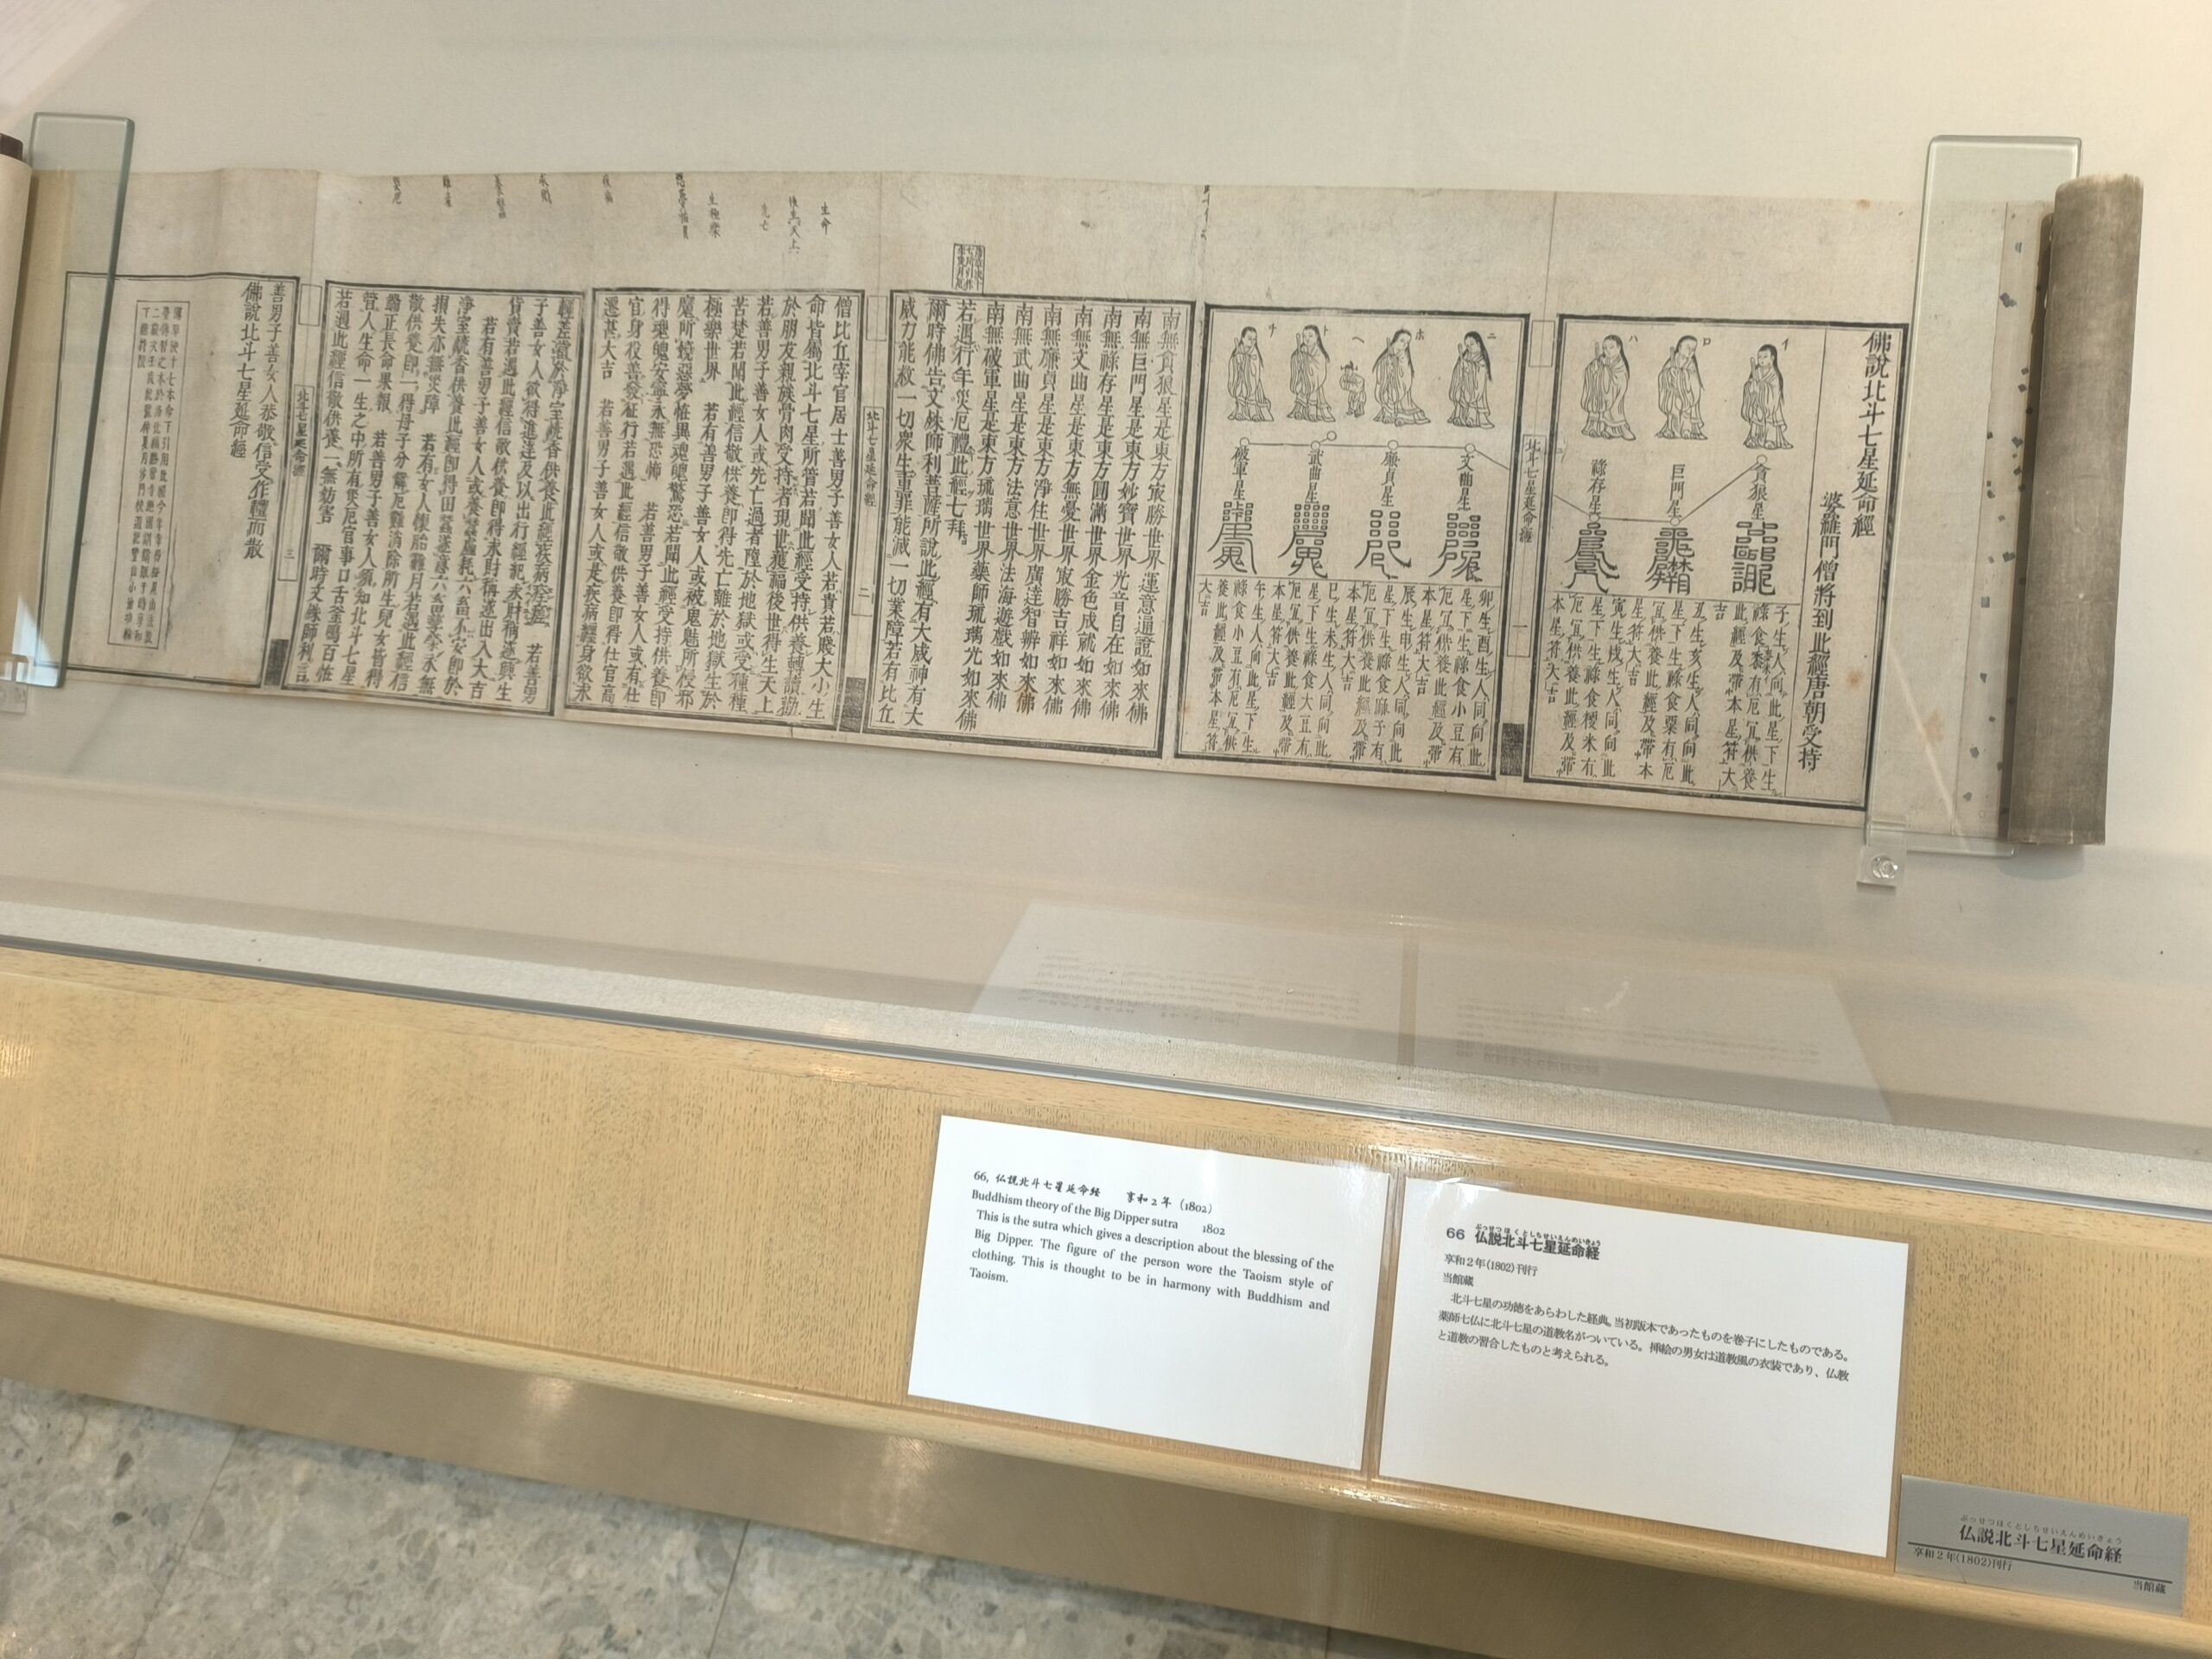 佛說北斗七星延命經
婆羅門僧將到此經唐朝受持
イ
ロ
ハ
貪狼星
巨門星
祿存星
子生人向此星下生
祿食黍有厄宜供養
此經及帶本星符大
吉
丑生亥生人同向此
星下生祿食粟有厄
宜供養此經及帶本
星符大吉
寅生戌生人同向此
星下生祿食粳米有
厄宜供養此經及帶
本星符大吉
北斗七星延命經
一
ニ
ホ
ヘ
ト
チ
文曲星
廉貞星
武曲星
破軍星
卯生酉生人同向此
星下生祿食小豆有
厄宜供養此經及帶
本星符大吉
辰生申生人同向此
星下生祿食麻子有
厄宜供養此經及帶
本星符大吉
巳生未生人同向此
星下生祿食大豆有
厄宜供養此經及帶
本星符大吉
午生人向此星下生
祿食小豆有厄宜供
養此經及帶本星符
大吉
南無貪狼星是東方最勝世界運意通證如來佛
南無巨門星是東方妙寶世界光音自在如來佛
南無祿存星是東方圓滿世界金色成就如來佛
南無文曲星是東方無憂世界最勝吉祥如來佛
南無廉貞星是東方淨住世界廣達智辨如來佛
南無武曲星是東方法意世界法海遊戲如來佛
南無破軍星是東方琉璃世界藥師琉璃光如來佛
若遇行年災厄禮此經七拜
爾時佛告文殊師利菩薩所說此經有大威神有大
威力能救一切衆生重罪能滅一切業障若有比丘
北斗七星延命經
二
生命
後生天上
先亡
生極樂
僧比丘宰官居士善男子善女人若貴若賤大小生
命皆屬北斗七星所管若聞此經受持供養轉讀勸
於朋友親族骨肉受持者現世獲福後世得生天上
若善男子善女人或先亡過者墮於地獄或受種種
苦楚若聞此經信敬供養即得先亡離於地獄生於
極樂世界 若有善男子善女人或被鬼魅所侵邪
魔所嬈惡夢怪異魂魄驚恐若聞此經受持供養即
得魂魄安寧永無恐怖 若善男子善女人或有仕
官身役善發征行若遇此經信敬供養即得仕官高
遷甚大吉 若善男子善女人或是疾病纏身欲求
輕差當於淨室燒香供養此經疾病
若善男
子善女人欲得進達及以出行經記求財稱遂興生
貨賣若遇此經信敬供養即得求財稱遂出入大吉
若有善男子善女人或養蠶虛耗六畜不安即於
淨室燒香供養此經即得田蠶遂意六畜
永無
損失亦無災障 若有女人懷胎難月若遇此經信
敬供養即得母子分解厄難消除所生兒女皆得
端正長命果報 若善男子善女人須知北斗七星
管人生命一生之中所有災厄官事口舌釜鳴百怪
若遇此經信敬供養一無妨害 爾時文殊師利言
北斗七星延命經
三
善男子善女人恭敬信受作禮而散
佛說北斗七星延命經
66, 仏説北斗七星延命経 享和2年 (1802)
Buddhism theory of the Big Dipper sutra 1802
This is the sutra which gives a description about the blessing of the
Big Dipper. The figure of the person wore the Taoism style of
clothing. This is thought to be in harmony with Buddhism and
Taoism.
ぶっせつほくとしちせいえんめいきょう
66 仏説北斗七星延命経
享和2年(1802)刊行
当館蔵
北斗七星の功徳をあらわした経典。当初版本であったものを巻子にしたものである。
薬師七仏に北斗七星の道教名がついている。挿絵の男女は道教風の衣装であり、仏教
と道教の習合したものと考えられる。
ぶっせつほくとしちせいえんめいきょう
仏説北斗七星延命経
享和2年(1802)刊行
当館蔵